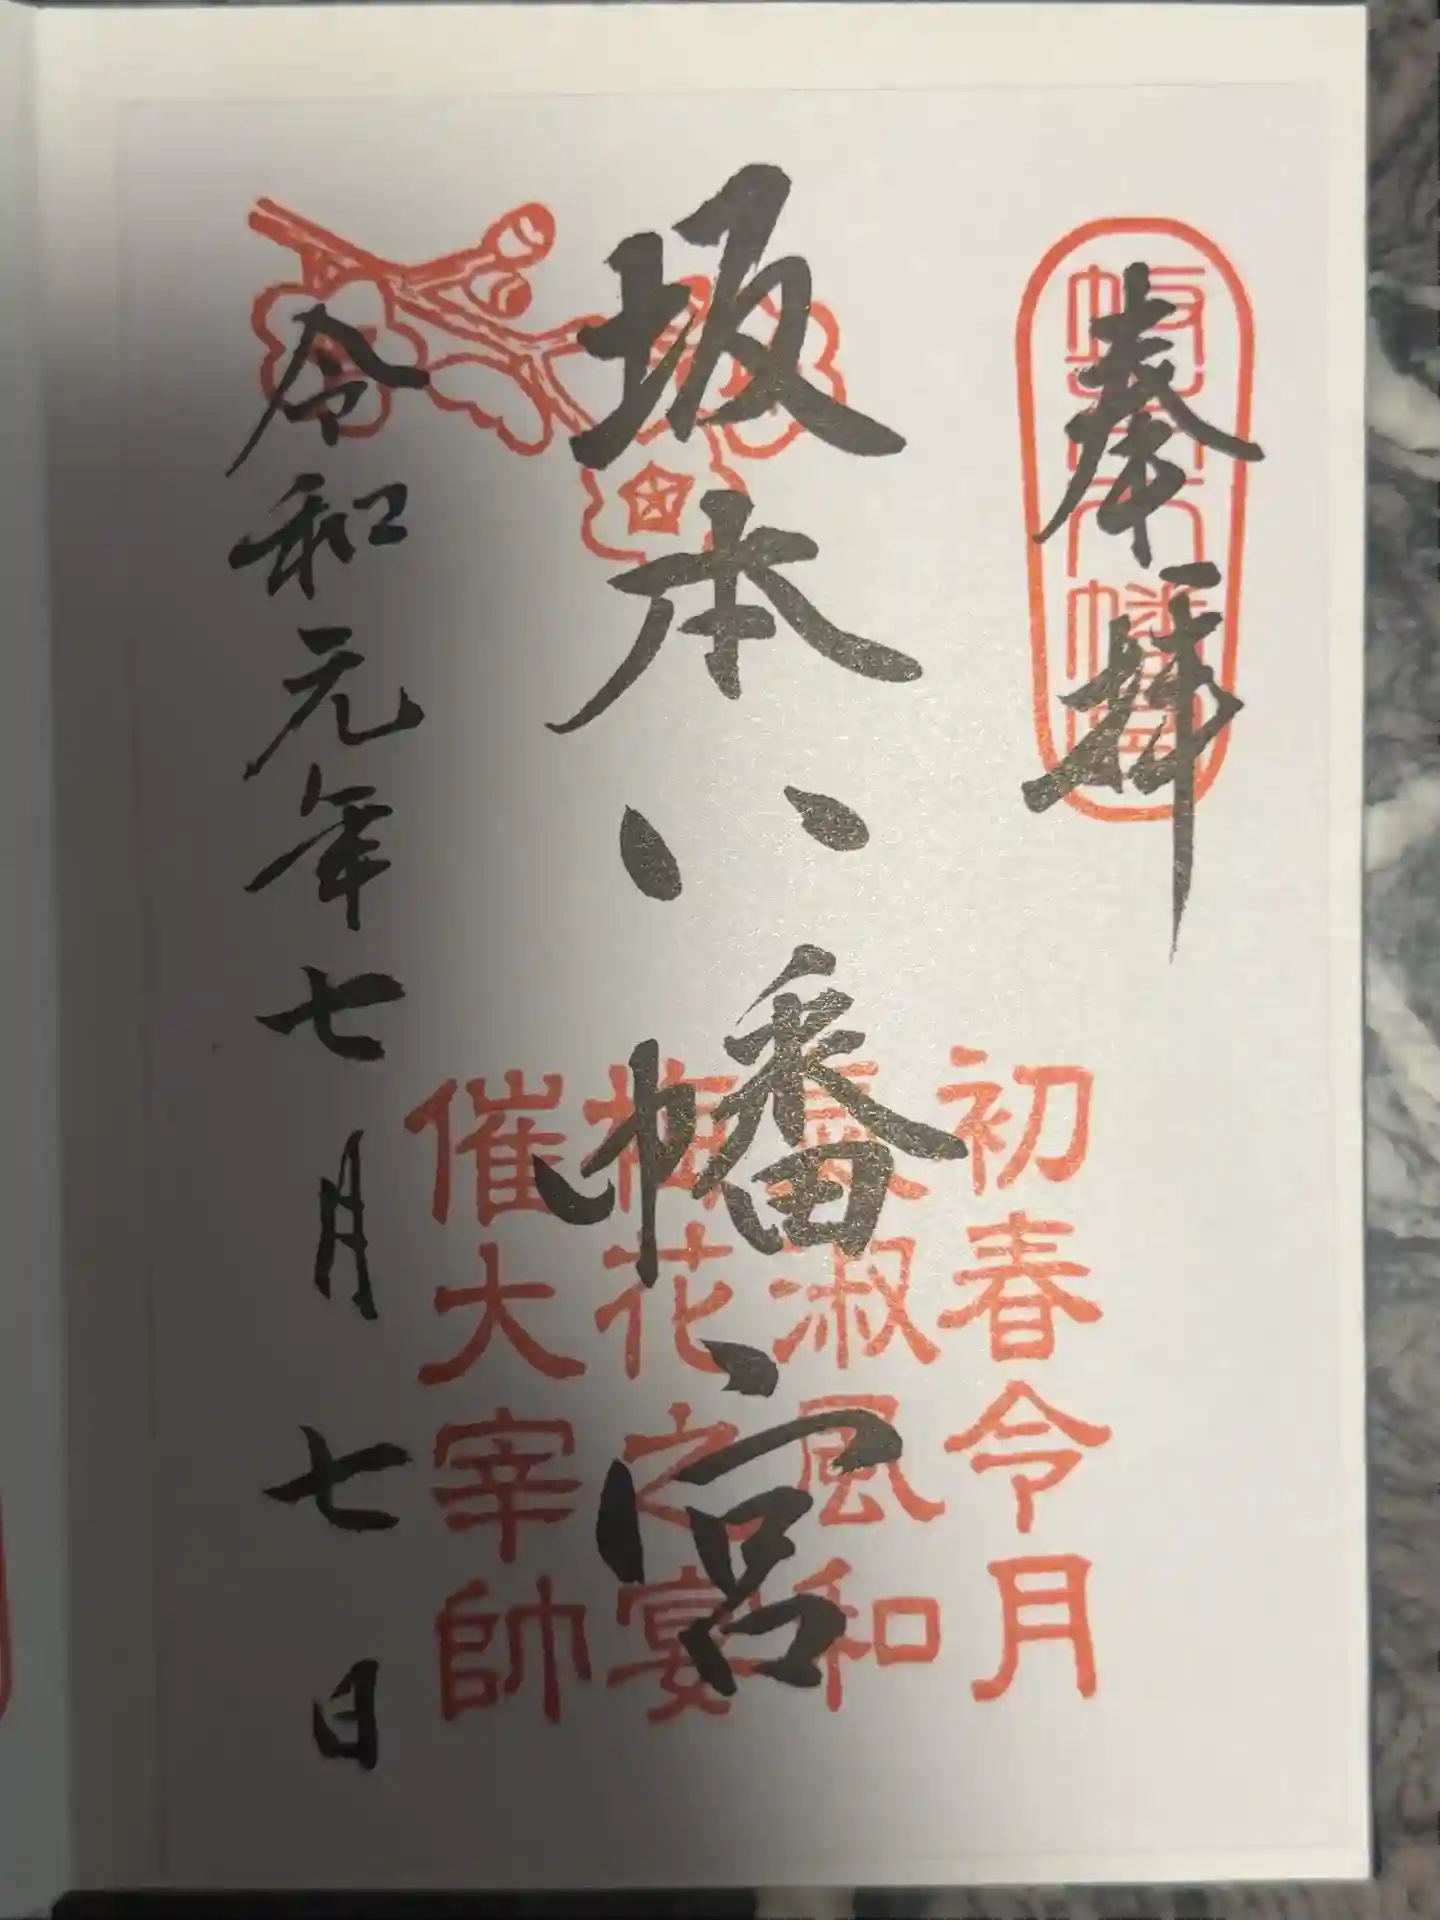 奉拝
坂本八幡宮
令和元年七月七日
初春令月
淑風和
梅花之宴
催大宰帥